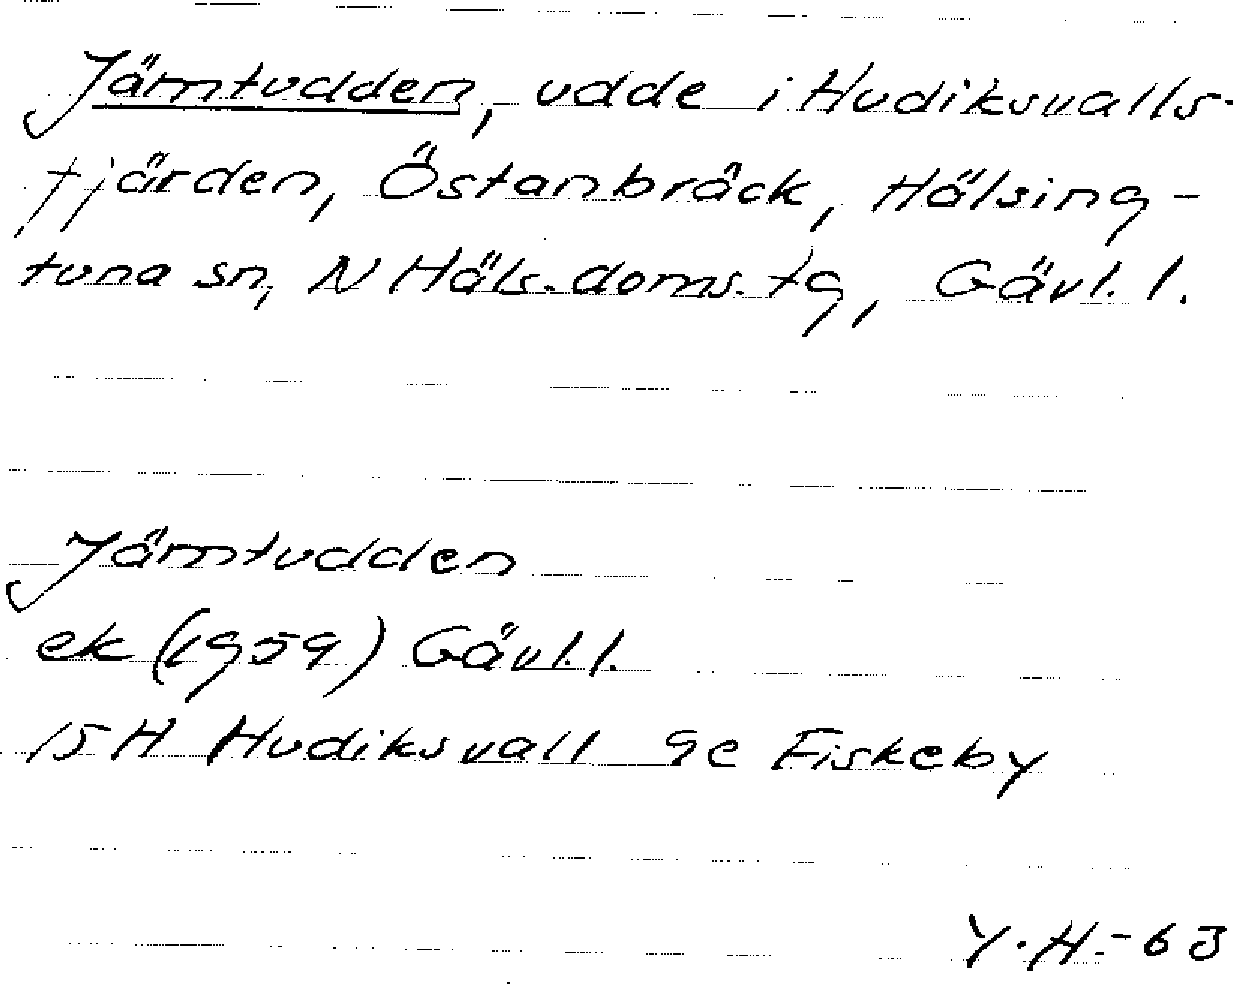 Jämtudden, udde i Hudiksvalls-
fjärden, Östanbräck, Hälsing-
tuna sn, N Häls. doms. tg, Gävl. l.
Jämtudden
ek (1959) Gävl. l.
15H Hudiksvall 9c Fiskeby
Y. H. - 63